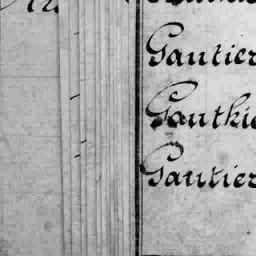 Gautier
Gauthie
Gautier